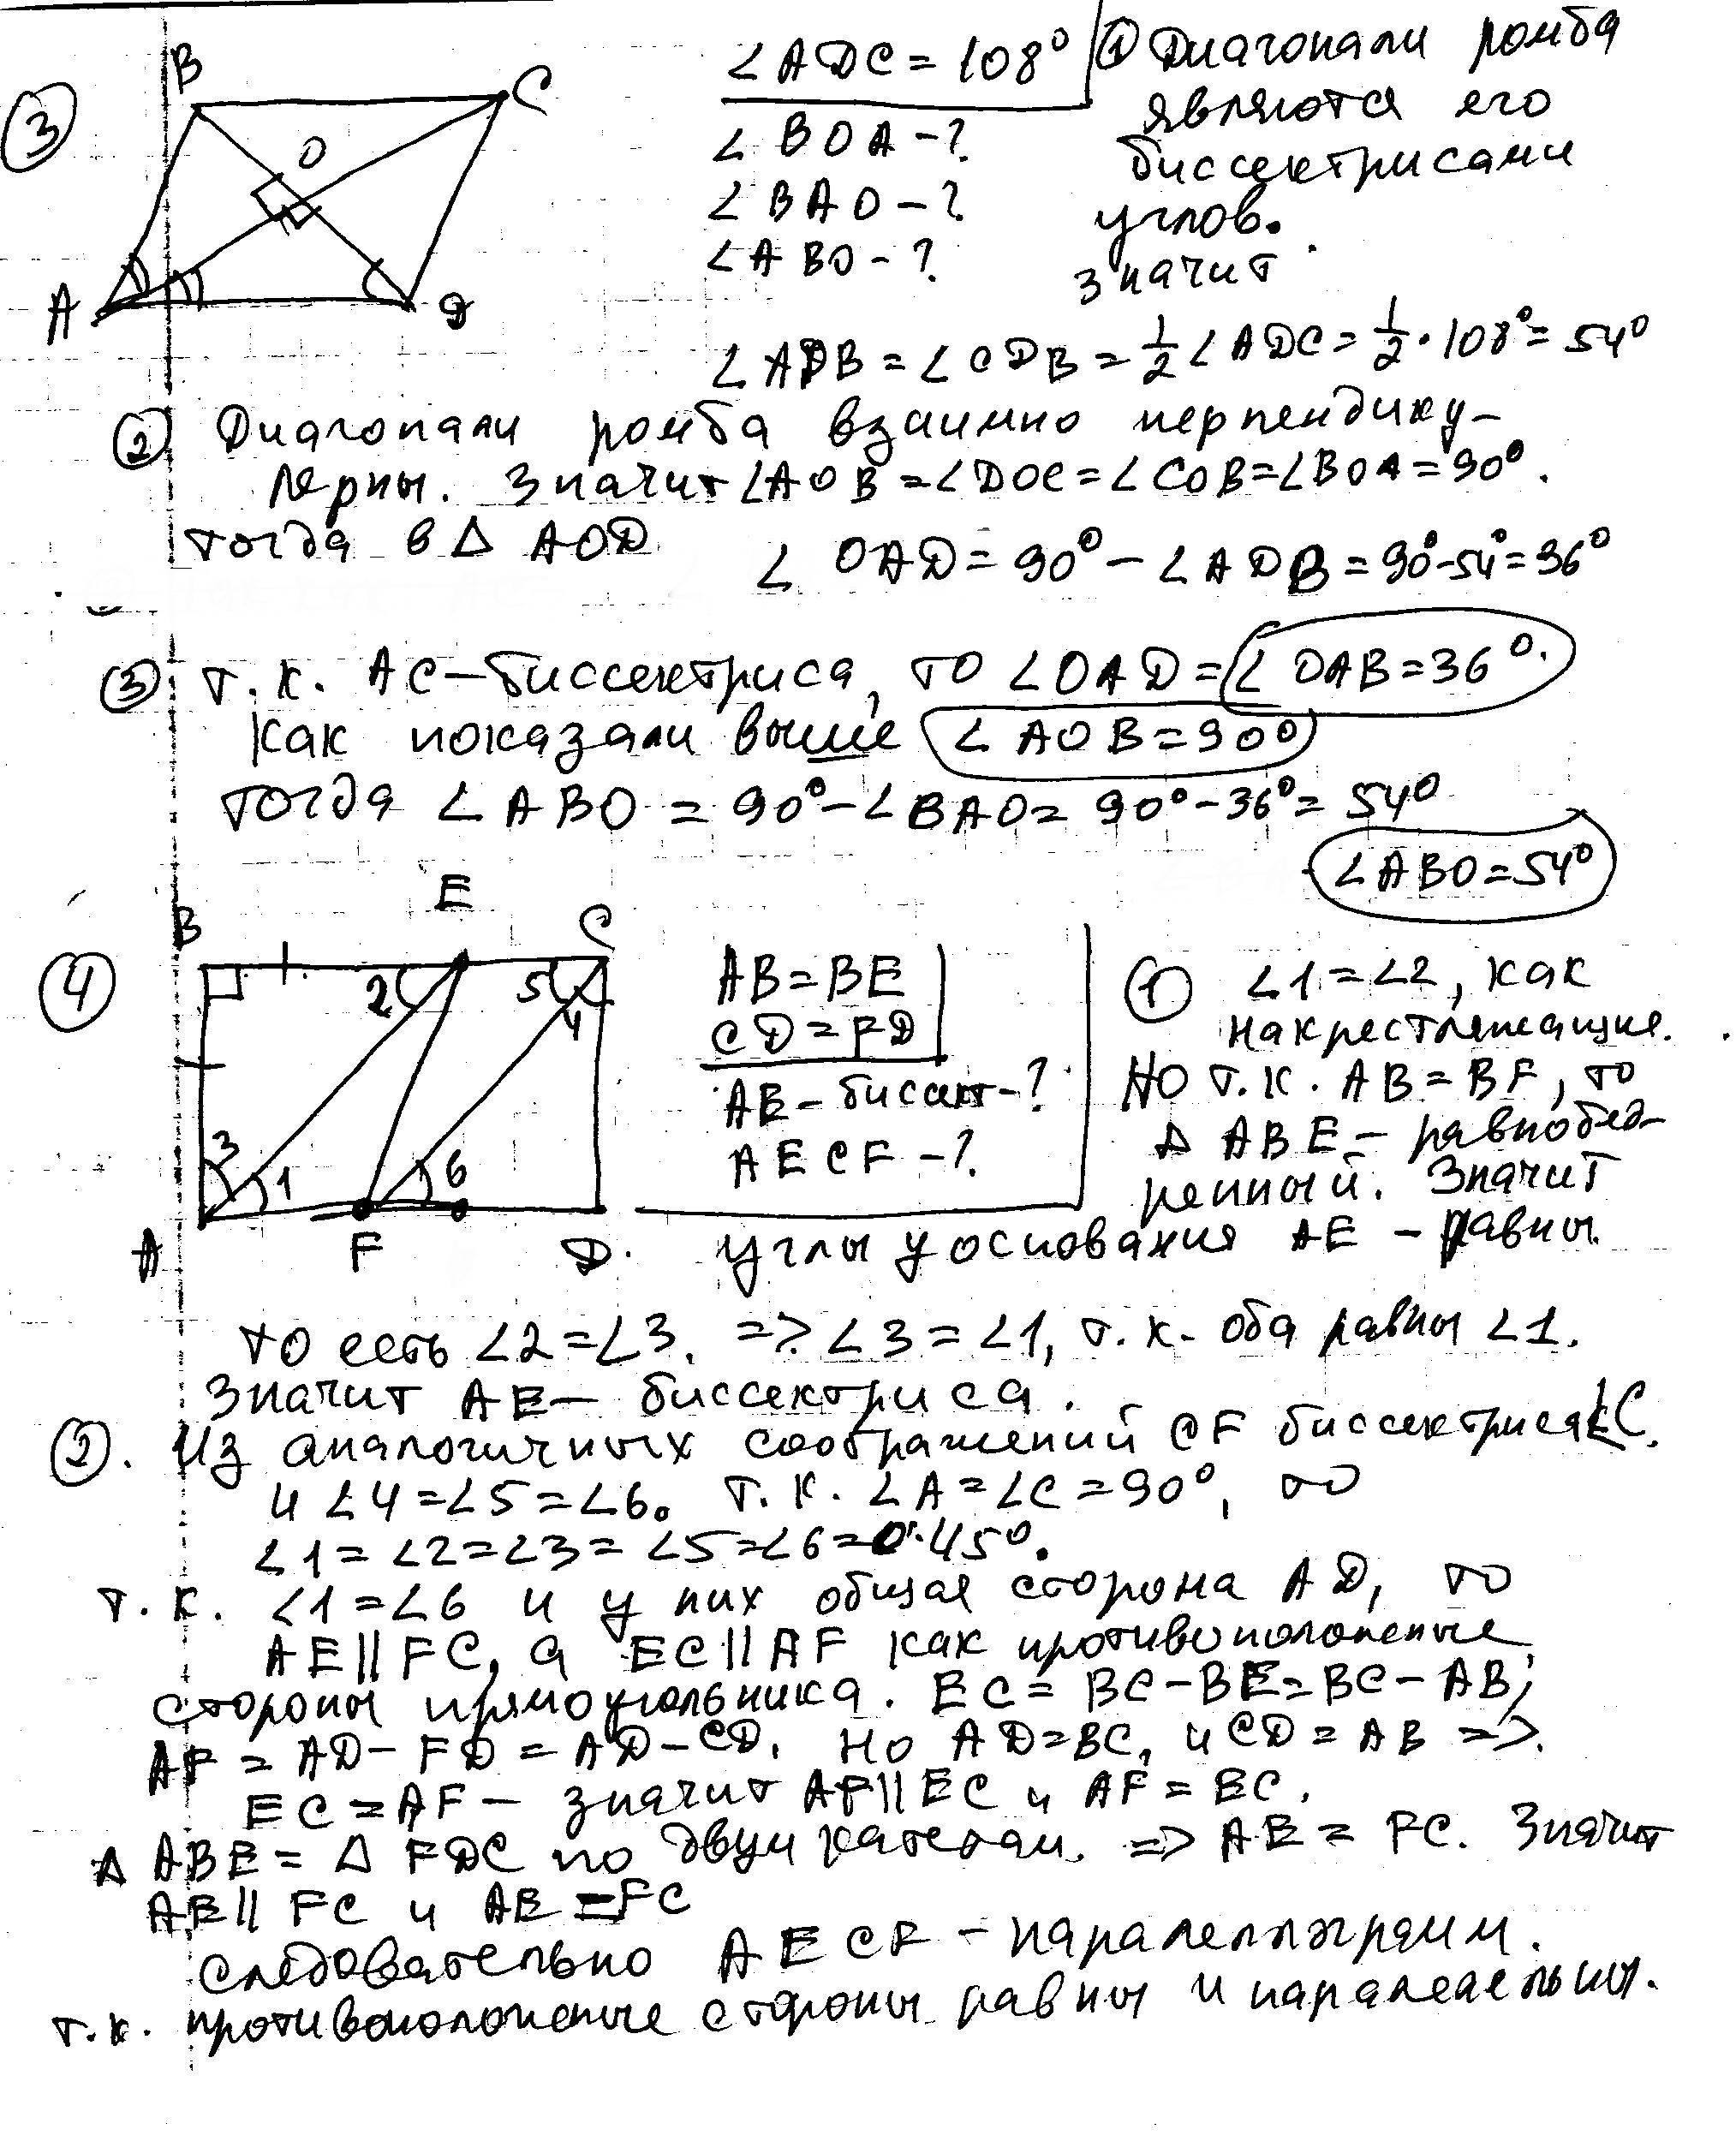 ③
B
C
O
A
D
∠ADC = 108°
∠BOA - ?
∠BAO - ?
∠ABO - ?
① Диагонали ромба
являются его
биссектрисами
углов.
значит
∠ADB = ∠CDB = 1/2 ∠ADC = 1/2 · 108° = 54°
② Диагонали ромба взаимно перпендику-
лярны. Значит ∠AOB = ∠DOC = ∠COB = ∠BOA = 90°.
тогда в △ AOD ∠OAD = 90° - ∠ADB = 90° - 54° = 36°
③ т.к. AC - биссектриса, то ∠OAD = ∠OAB = 36°.
Как показали выше ∠AOB = 90°
тогда ∠ABO = 90° - ∠BAO = 90° - 36° = 54°
∠ABO = 54°
④
B
E
C
2
5
4
3
1
6
A
F
D.
AB = BE
CD = FD
AE - биссект - ?
AECF - ?
① ∠1 = ∠2, как
накрестлежащие.
Но т.к. AB = BF, то
△ ABE - равнобед-
ренный. Значит
углы у основания AE - равны.
то есть ∠2 = ∠3. => ∠3 = ∠1, т.к. оба равны ∠1.
Значит AE - биссектриса.
②. Из аналогичных соображений CF биссектриса ∠C.
и ∠4 = ∠5 = ∠6. т.к. ∠A = ∠C = 90°, то
∠1 = ∠2 = ∠3 = ∠5 = ∠6 = 45°.
т.к. ∠1 = ∠6 и у них общая сторона AD, то
AE || FC, а EC || AF как противоположные
стороны прямоугольника. EC = BC - BE = BC - AB;
AF = AD - FD = AD - CD. Но AD = BC, и CD = AB =>
EC = AF - значит AF || EC и AF = EC.
△ ABE = △ FDC по двум катетам. => AE = FC. Значит
AE || FC и AE = FC
следовательно AECF - паралеллограмм.
т.к. противоположные стороны равны и паралельны.